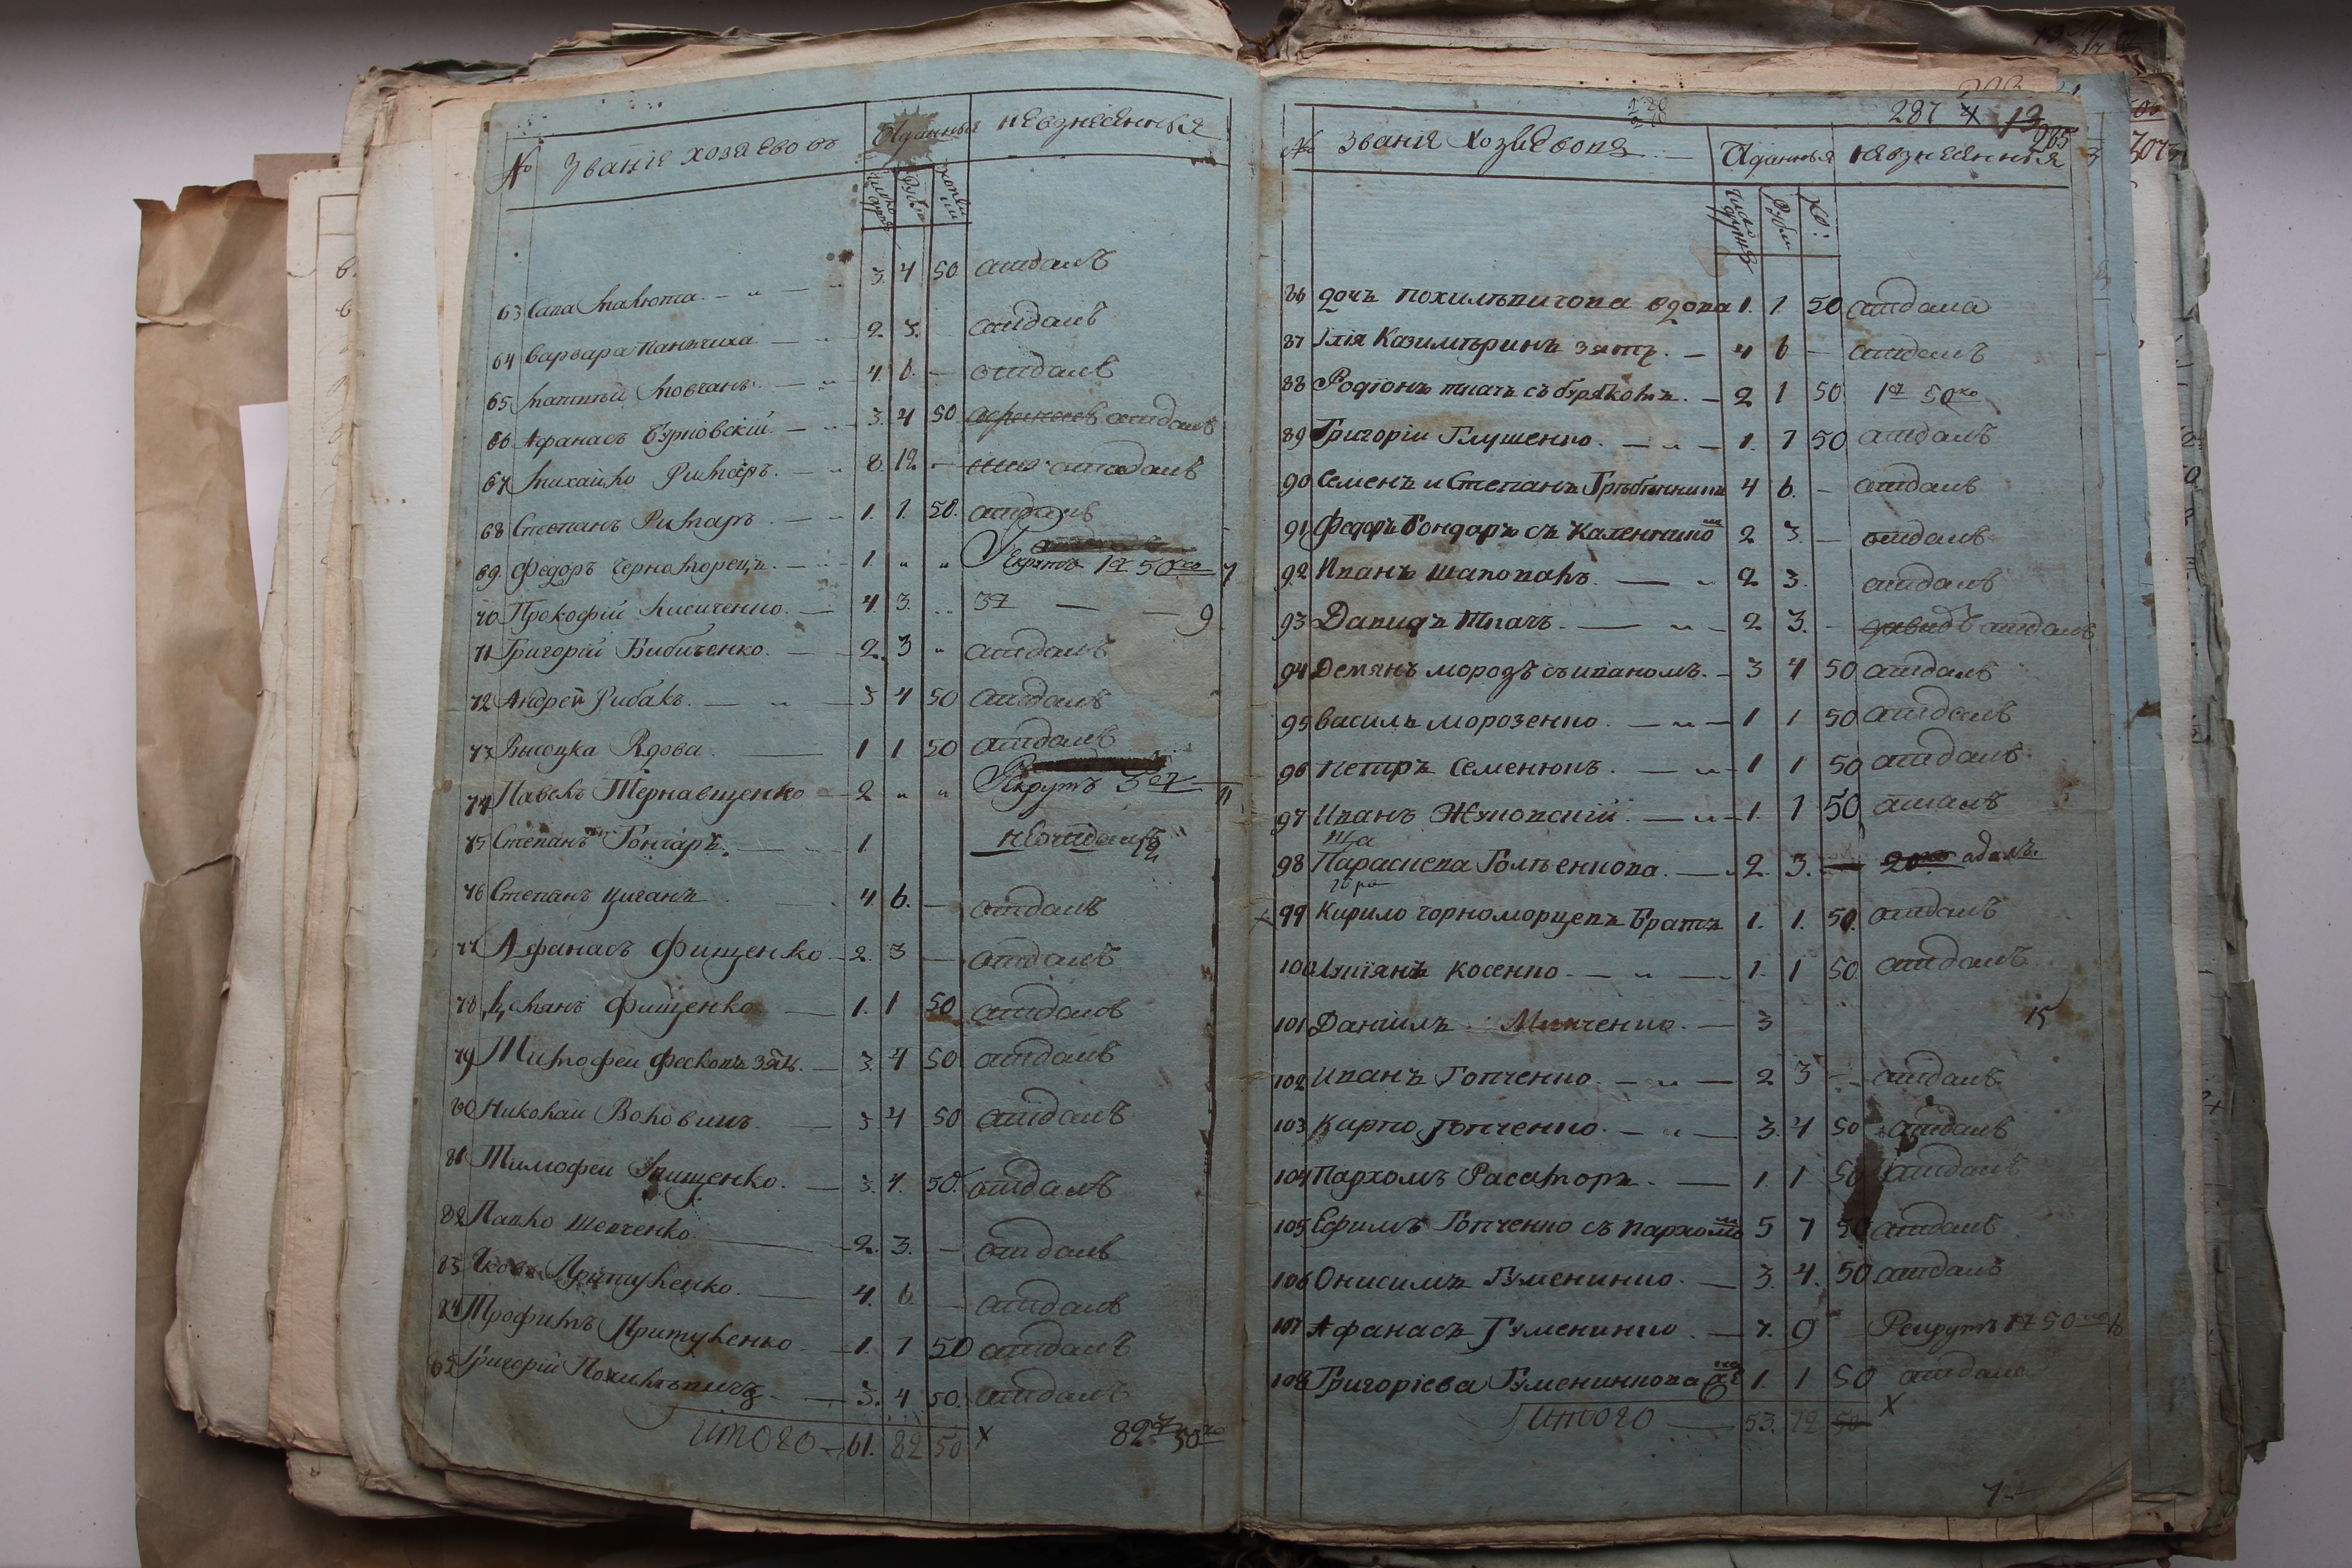 № Званія хозаевовъ Отданныя невзнесенныя
число душъ Рубли копѣи
63 Сава Малюта. 3. 4 50 отдалъ
64 Варвара Панъчиха 2. 3. отдалъ
65 Матвѣй Мовчанъ. 4. 6. — отдалъ
66 Афанасъ Бурковскій. 3. 4 50 отдалъ
67 Михайло Римаръ. 8. 12 — отдалъ
68 Степанъ Римаръ 1. 1. 50. отдалъ
69. Федоръ Черноморецъ. 1 " " Рекрутъ 1 50 7
70 Прокофій Лисиченко. 4. 3. " 3 — — 9
71 Григорій Бибиченко. 2. 3 " отдалъ
72 Андрей Рибакъ. 3 4 50 отдалъ
73 Висоцка Вдова. 1 1 50 отдалъ
74 Павелъ Тернавщенко 2 " " Рекрутъ 3 11
75 Степанъ Гончаръ. 1. неотдалъ 12
76 Степанъ Циганъ 4. 6. — отдалъ
77 Афанасъ Фищенко 2. 3 — отдалъ
78 Демянъ Фищенко. 1. 1 50 отдалъ
79 Тимофей Фесковъ зять. 3. 4 50 отдалъ
80 Николай Воловикъ. 3 4 50 отдалъ
81 Тимофей Грищенко. 3. 4. 50. отдалъ
82 Павло Шевченко. 2. 3. — отдалъ
83 Яковъ Притуленко. 4. 6. — отдалъ
84 Трофимъ Притуленко. 1. 1 50 отдалъ
85 Григорій Похилъвичъ 3. 4 50. отдалъ
Итого 61. 82 50 х 82 50
287 13
265
№ Званія Хозаевовъ Отданныя невзнесенныя
число душъ Рубли Ко:
86 дочъ Похилъвичова вдова 1. 1 50 отдала
87 Ілія Казимѣринъ зять. 4 6 — отдалъ
88 Родіонъ ткачъ съ бурякомъ. 2 1 50 1 50
89 Григорій Глушенко. 1. 1 50 отдалъ
90 Семенъ и Степанъ Гребенники 4 6. — отдалъ
91 Федоръ Бондаръ съ Каленикомъ 2 3. — отдалъ
92 Иванъ Шаповалъ. 2 3. отдалъ
93 Давидъ Ткачъ. 2 3. — давидъ отдалъ
94 Демянъ морозъ съ иваномъ. 3 4 50 отдалъ
95 Василь морозенко. 1 1 50 отдалъ
96 Петръ Семенюкъ. 1 1 50 отдалъ
97 Иванъ Жуковскій. 1. 1 50 отдалъ
98 Параскева Голѣенкова. 2. 3. 20 одалъ.
99 Кирило чорноморцевъ Братъ 1. 1. 50. отдалъ
100 Лукіянъ Косенко 1. 1 50. отдалъ
101 Даніилъ Мивченко. 3 15
102 Иванъ Говченко. 2 3 — отдалъ
103 Карпо Говченко. 3. 4 50 отдалъ
104 Пархомъ Расаторъ. 1. 1 50 отдалъ
105 Ефимъ Говченко съ пархомомъ 5 7 50 отдалъ
106 Онисимъ Гуменинко. 3. 4. 50 отдалъ
107 Афанасъ Гуменинко. 7. 9 Рекрутъ 1 50 16
108 Григоріева Гуменинкова 1. 1 50 отдала
Итого 53. 72 50 х